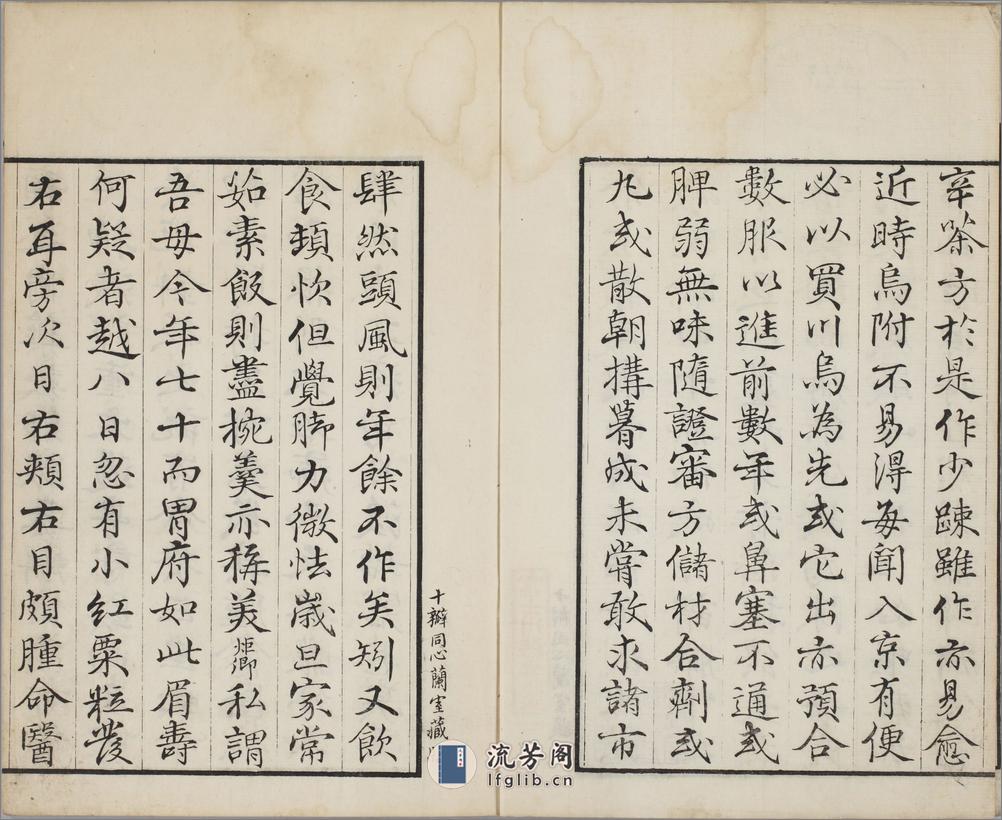 辛荼方於是作少踈雖作亦易愈
近時烏附不易得每聞入京有便
必以買川烏為先或它出亦預合
數服以進前數年或鼻塞不通或
脾弱無味隨證審方儲材合劑或
丸或散朝搆暮成未嘗敢求諸市
肆然頭風則年餘不作矣矧又飲
食頗忺但覺脚力微怯歲旦家常
茹素飯則盡捥羹亦稱美炬卿私謂
吾母今年七十而胃府如此眉壽
何疑者越八日忽有小紅粟粒發
右耳旁次日右頰右目頗腫命醫
十瓣同心蘭室藏
流芳阁
lfglib.cn